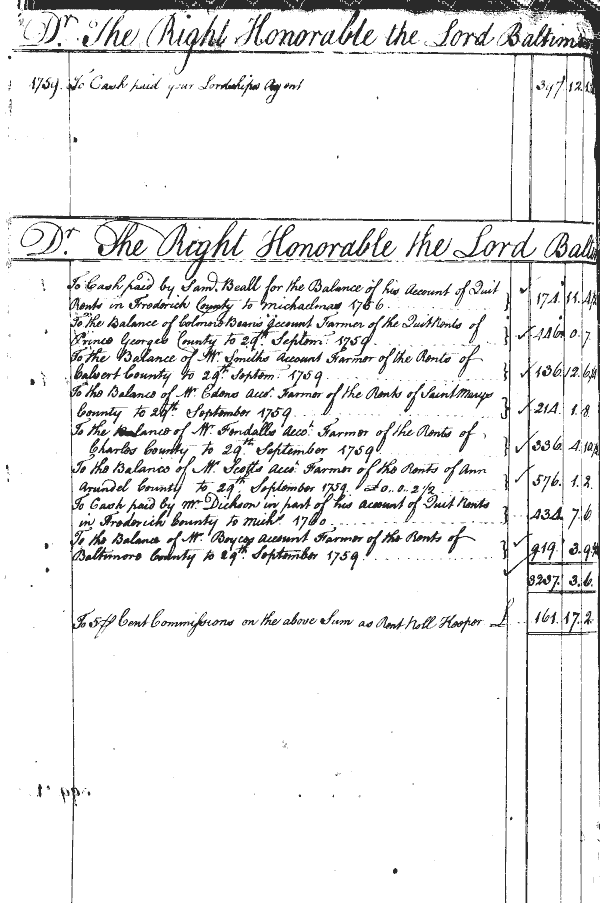 Dr. The Right Honorable the Lord Baltimor
1759. To Cash paid your Lordships Agent 397 12
Dr. The Right Honorable the Lord Balti
To Cash paid by Saml. Beall for the Balance of his Account of Quit
Rents in Frederick County to michaelmas 1756 174. 11. 4
To the Balance of Colonel Account Farmer of the Quit Rents of
Prince Georges County to 29th Septem. 1759 446. 0. 7
To the Balance of Mr. Smiths Account Farmer of the Rents of
Calvert County to 29th Septem. 1759 136. 12. 6
To the Balance of Mr. Edens Acct. Farmer of the Rents of Saint Marys
County to 29th. September 1759 214. 1. 8
To the Balance of Mr. Fendalls Acct. Farmer of the Rents of
Charles County to 29th September 1759 336. 4. 10
To the Balance of Mr. Scotts Acct. Farmer of the Rents of Ann
Arundel County to 29th September 1759 £0..0..2 1/2 576. 1. 2
To Cash paid by Mr. Dickson in part of his account of Quit Rents
in Frederick County to Michs. 1760 434. 7. 6
To the Balance of Mr. Boyces Account Farmer of the Rents of
Baltimore County to 29th September 1759 919. 3. 9
3237. 3. 6.
To 5 Cent Commissions on the above Sum as Rent Roll Keeper £ 161. 17. 2